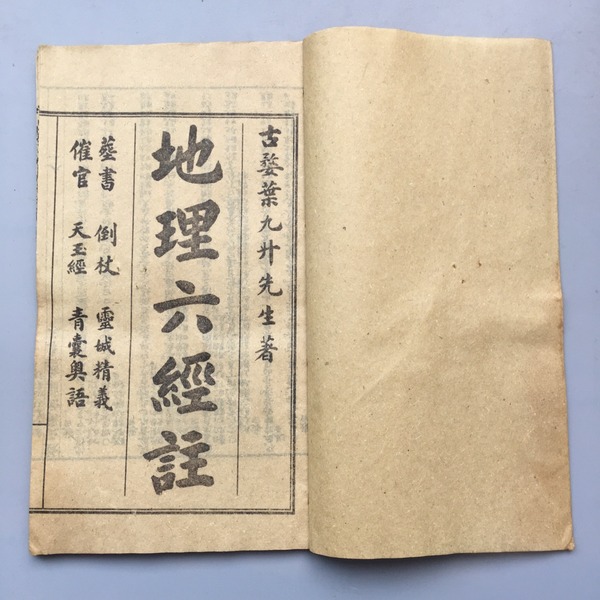 古婺葉九升先生著
地理六經註
塟書 倒杖 靈城精義
催官 天玉經 青囊奧語